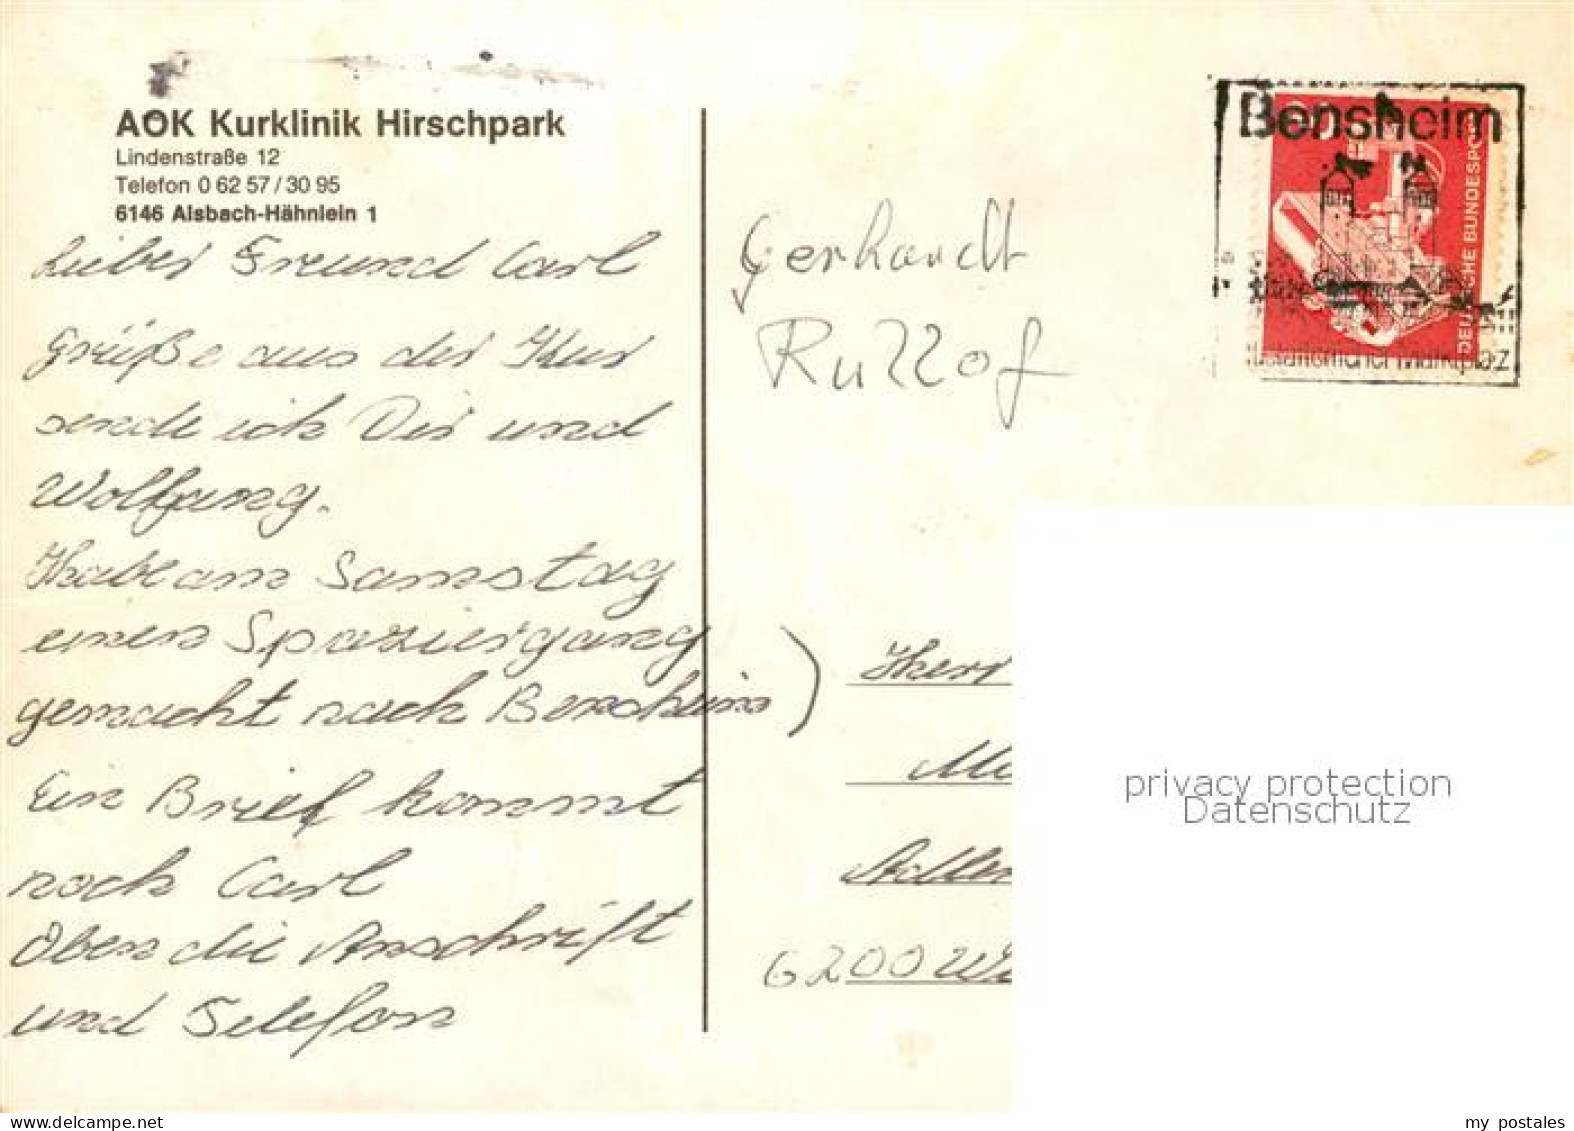 AOK Kurklinik Hirschpark
Lindenstraße 12
Telefon 0 62 57 / 30 95
6146 Alsbach-Hähnlein 1
Lieber Freund Carl
Grüße aus der Kur
sende ich Dir und
Wolfgang.
Habe am Samstag
einen Spaziergang
gemacht nach Bensheim)
Ein Brief kommt
noch Carl
Oben die Anschrift
und Telefon
Gerhardt
Rullof
Bensheim
DEUTSCHE BUNDESPOST
Herr
Adler
6200 Wi
privacy protection
Datenschutz
my postales